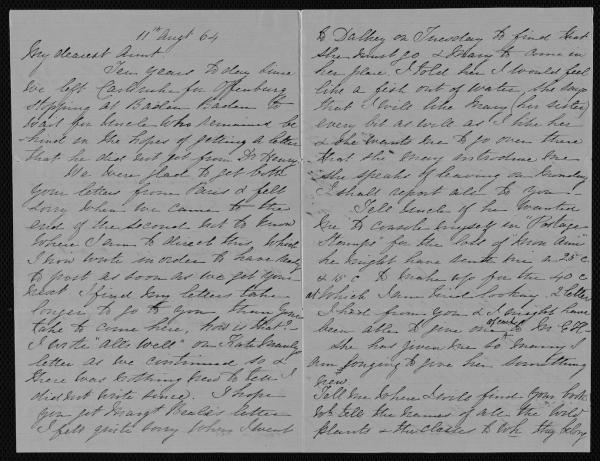 11th Augt 64
My dearest Aunt.
Ten years to day since
we left Carlsruhe for Offenburg
stopping at Baden Baden to
wait for Uncle who remained be-
hind in the hopes of getting a letter
that he did not get from Dr Henry
We were glad to get both
your letters from Paris & felt
sorry when we came to the
end of the second not to know
where I am to direct this, which
I now write in order to have ready
to post as soon as we get your
next I find my letters take
longer to go to you than yours
take to come here, how is that?
I write "all's well" on
letter as we continued so &
there was nothing new to tell I
did not write since. I hope
you got Margt letter
I felt quite sorry when I went
to Dalkey on Tuesday to find that
she must go & Mary to come in
her place. I told her I would feel
like a fish out of water, she says
that I will like Mary (her sister)
every bit as well as I like her
& she wants me to go over there
that she may introduce me
she speaks of leaving on Monday
I shall report all to you.
Tell Uncle if he wanted
me to console myself in "Postage
Stamps" for the loss of "Mon Ami"
he might have sent me a 25 c
& 15 c to make up for the 40 c
at which I am tired looking, 2 letters
I had from you & I might have
been able to give one of each to Mr
She has given me so many I
am longing to give her something
new.
Tell me where I will find your book
wh tells the names of all the wild
plants & the classes to wh they belong